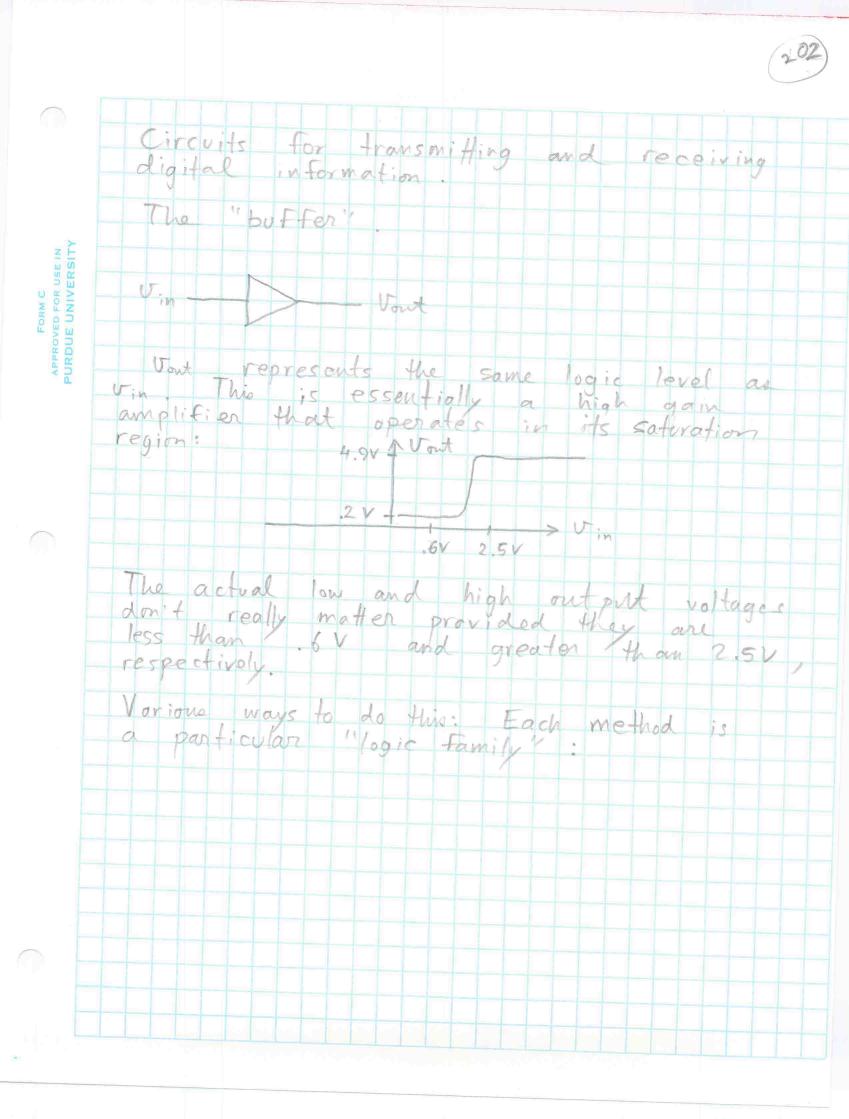 202
FORM C
APPROVED FOR USE IN
PURDUE UNIVERSITY
Circuits for transmitting and receiving
digital information.
The "buffer".
Vin
Vout
Vout represents the same logic level as
Vin. This is essentially a high gain
amplifier that operates in its saturation
region:
4.9V
Vout
.2V
Vin
.6V
2.5V
The actual low and high output voltages
don't really matter provided they are
less than .6V and greater than 2.5V,
respectively.
Various ways to do this: Each method is
a particular "logic family":